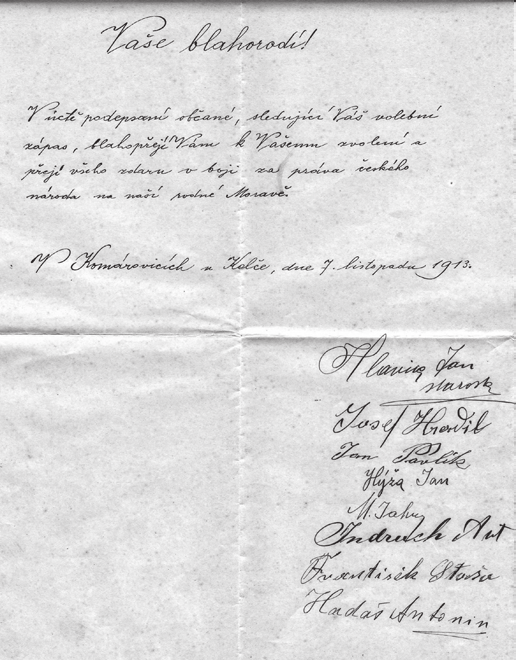 Vaše blahorodí!
V úctě podepsaní občané, sledující Váš volební
zápas, blahopřejí Vám k Vašemu zvolení a
přejí všeho zdaru v boji za práva českého
národa na naší rodné Moravě.
V Komárovicích u Kelče, dne 7. listopadu 1913.
Jan
starosta
Josef Hradil
Jan Pavlík
Hýža Jan
M.
Indruch Ant
František
Hadaš Antonin